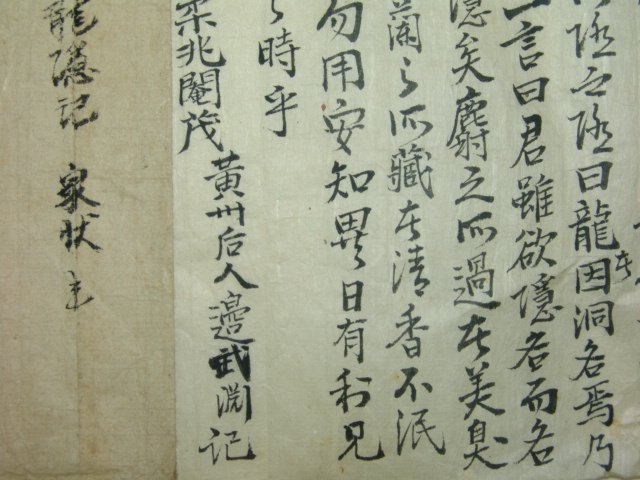 隱之隱曰龍因洞名焉乃
一言曰君雖欲隱名而名
隱矣麝之所過在美臭
蘭之所藏在清香不泯
勿用安知異日有利見
之時乎
柔兆閹茂
黃州后人邊武淵記
龍隱記
家狀